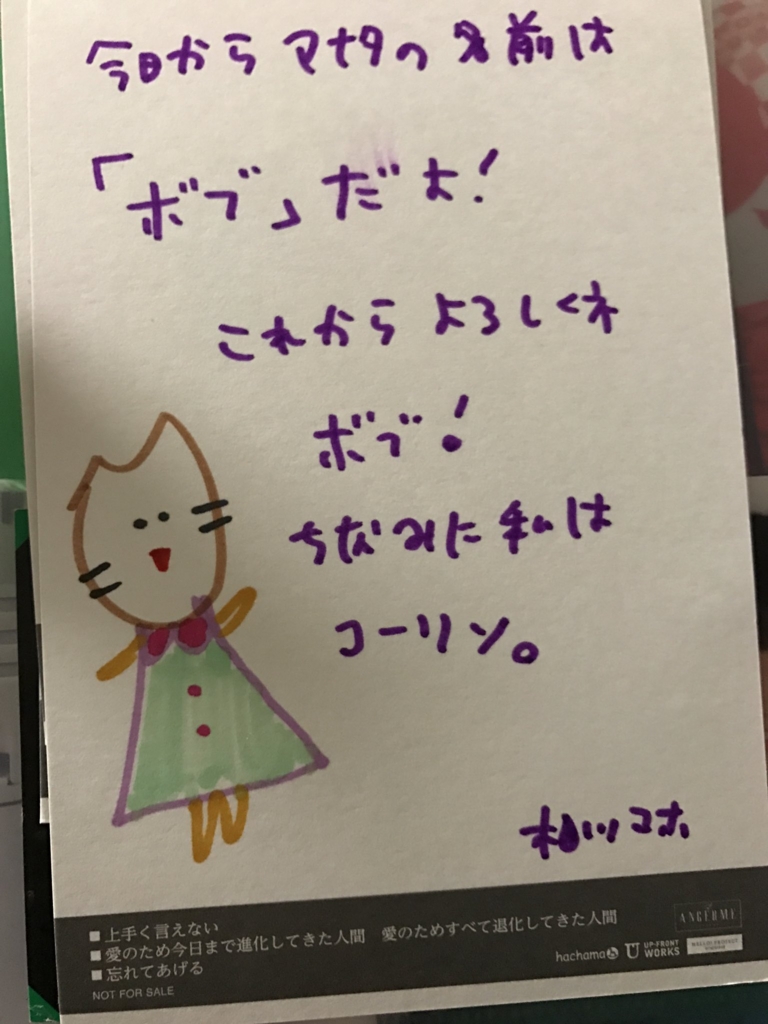 今日からアナタの名前は
「ボブ」だよ!
これからよろしくネ
ボブ!
ちなみに私は
コーリン。
相川コホ
■上手く言えない
■愛のため今日まで進化してきた人間 愛のためすべて退化してきた人間
■忘れてあげる
NOT FOR SALE
ANGERME
hachama
UP-FRONT WORKS